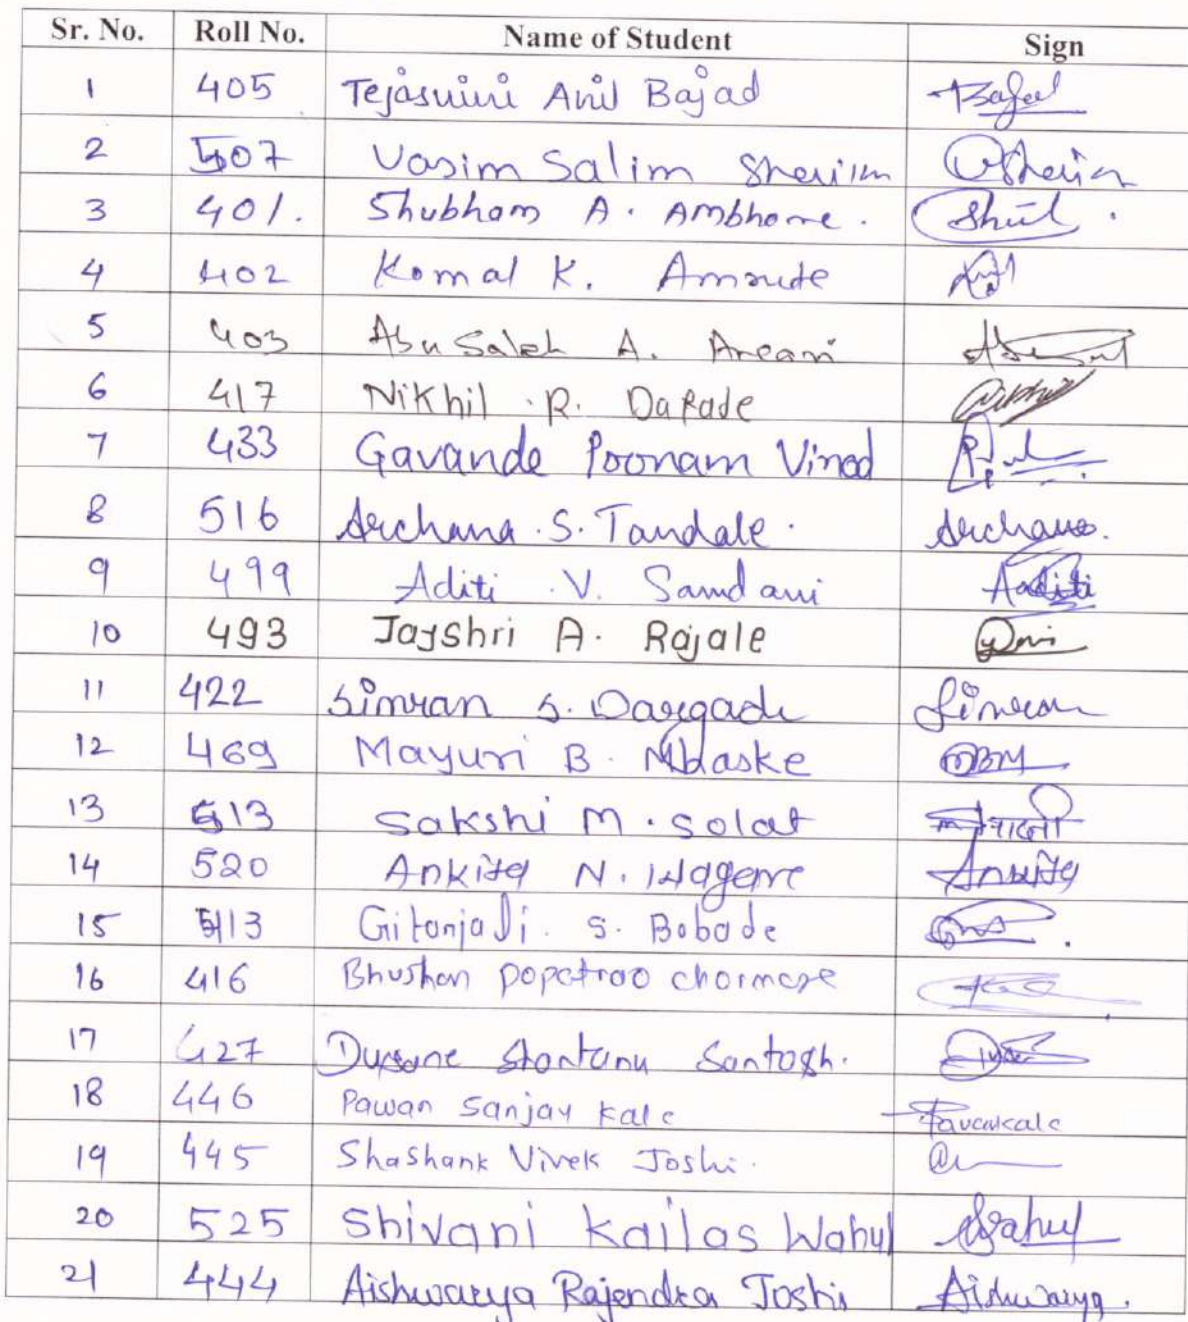 Sr. No. Roll No. Name of Student Sign
1 405 Tejaswini Anil Bajad Bajad
2 507 Vasim Salim
3 401. Shubham A. Ambhore.
4 402 Komal K. Amrute
5 403 Abu Saleh A.
6 417 Nikhil R. Darade
7 433 Gavande Poonam Vinod
8 516 Archana S. Tandale. Archana.
9 499 Aditi V. Samdani Aaditi
10 493 Jayshri A. Rajale
11 422 Simran S. Dargade Simran
12 469 Mayuri B. Mhaske MBM
13 513 Sakshi M. Solat
14 520 Ankita N. Wagare Ankita
15 413 Gitanjali. S. Bobade
16 416 Bhushan popatrao chormare
17 427 Dusane Shantanu Santosh.
18 446 Pawan Sanjay Kale Pavankale
19 445 Shashank Vivek Joshi.
20 525 Shivani Kailas Wahul Wahul
21 444 Aishwarya Rajendra Joshi Aishwarya.